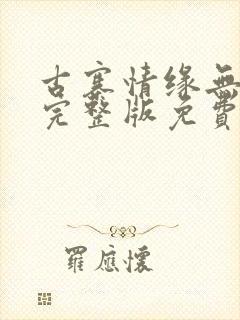 古寨情缘無
完整版免費
羅應懷